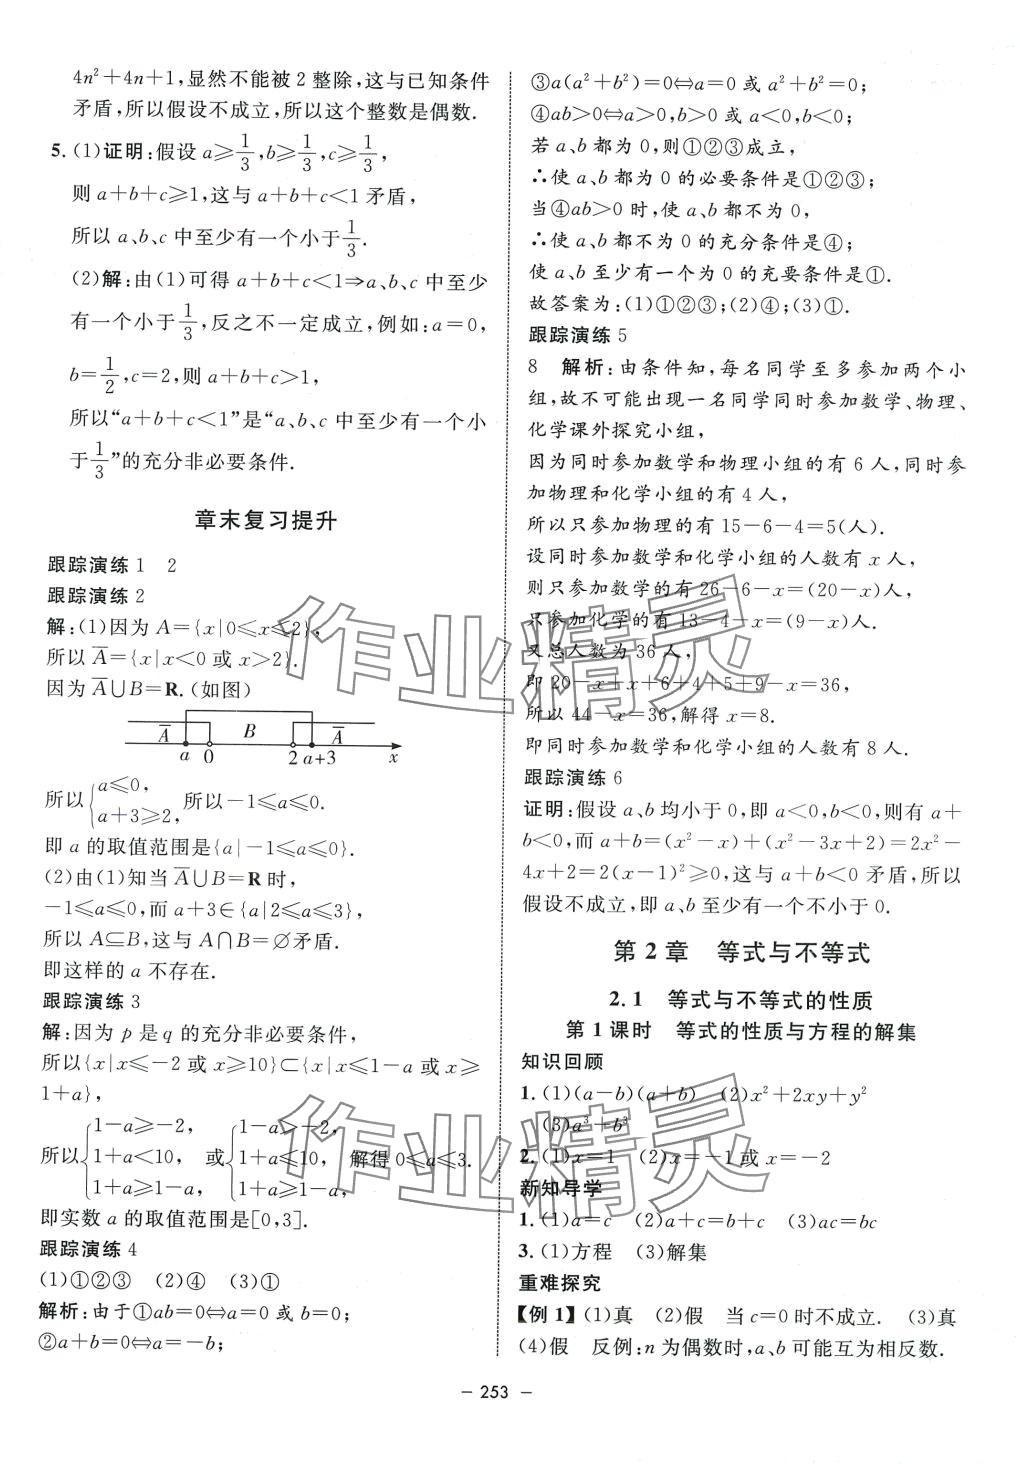 4n²+4n+1,显然不能被 2 整除,这与已知条件
矛盾,所以假设不成立,所以这个整数是偶数.
5. (1)证明:假设 a≥1/3,b≥1/3,c≥1/3,
则 a+b+c≥1,这与 a+b+c<1 矛盾,
所以 a、b、c 中至少有一个小于1/3.
(2)解:由(1)可得 a+b+c<1⇒a、b、c 中至少
有一个小于1/3,反之不一定成立,例如:a=0,
b=1/2,c=2,则 a+b+c>1,
所以“a+b+c<1”是“a、b、c 中至少有一个小
于1/3”的充分非必要条件.
章末复习提升
跟踪演练 1 2
跟踪演练 2
解:(1)因为 A={x|0≤x≤2},
所以 A̅={x|x<0 或 x>2}.
因为 A̅∪B=R.(如图)
A̅ B A̅
a 0 2 a+3 x
所以{a≤0, a+3≥2, 所以-1≤a≤0.
即 a 的取值范围是{a|-1≤a≤0}.
(2)由(1)知当 A̅∪B=R 时,
-1≤a≤0,而 a+3∈{a|2≤a≤3},
所以 A⊆B,这与 A∩B=∅矛盾.
即这样的 a 不存在.
跟踪演练 3
解:因为 p 是 q 的充分非必要条件,
所以{x|x≤-2 或 x≥10}⊂{x|x≤1-a 或 x≥
1+a},
所以{1-a≥-2, 1+a<10, 1+a≥1-a 或{1-a>-2, 1+a≤10, 1+a≥1-a, 解得 0≤a≤3.
即实数 a 的取值范围是[0,3].
跟踪演练 4
(1)①②③ (2)④ (3)①
解析:由于①ab=0⇔a=0 或 b=0;
②a+b=0⇔a=-b;
③a(a²+b²)=0⇔a=0 或 a²+b²=0;
④ab>0⇔a>0,b>0 或 a<0,b<0;
若 a、b 都为 0,则①②③成立,
∴使 a、b 都为 0 的必要条件是①②③;
当④ab>0 时,使 a、b 都不为 0,
∴使 a、b 都不为 0 的充分条件是④;
使 a、b 至少有一个为 0 的充要条件是①.
故答案为:(1)①②③;(2)④;(3)①.
跟踪演练 5
8 解析:由条件知,每名同学至多参加两个小
组,故不可能出现一名同学同时参加数学、物理、
化学课外探究小组,
因为同时参加数学和物理小组的有 6 人,同时参
加物理和化学小组的有 4 人,
所以只参加物理的有 15-6-4=5(人).
设同时参加数学和化学小组的人数有 x 人,
则只参加数学的有 26-6-x=(20-x)人,
只参加化学的有 13-4-x=(9-x)人.
又总人数为 36 人,
即 20-x+x+6+4+5+9-x=36,
所以 44-x=36,解得 x=8.
即同时参加数学和化学小组的人数有 8 人.
跟踪演练 6
证明:假设 a、b 均小于 0,即 a<0,b<0,则有 a+
b<0,而 a+b=(x²-x)+(x²-3x+2)=2x²-
4x+2=2(x-1)²≥0,这与 a+b<0 矛盾,所以
假设不成立,即 a、b 至少有一个不小于 0.
第 2 章 等式与不等式
2.1 等式与不等式的性质
第 1 课时 等式的性质与方程的解集
知识回顾
1. (1)(a-b)(a+b) (2)x²+2xy+y²
(3)a³+b³
2. (1)x=1 (2)x=-1 或 x=-2
新知导学
1. (1)a=c (2)a+c=b+c (3)ac=bc
3. (1)方程 (3)解集
重难探究
【例 1】(1)真 (2)假 当 c=0 时不成立. (3)真
(4)假 反例:n 为偶数时,a、b 可能互为相反数.
- 253 -
作业精灵
作业精灵